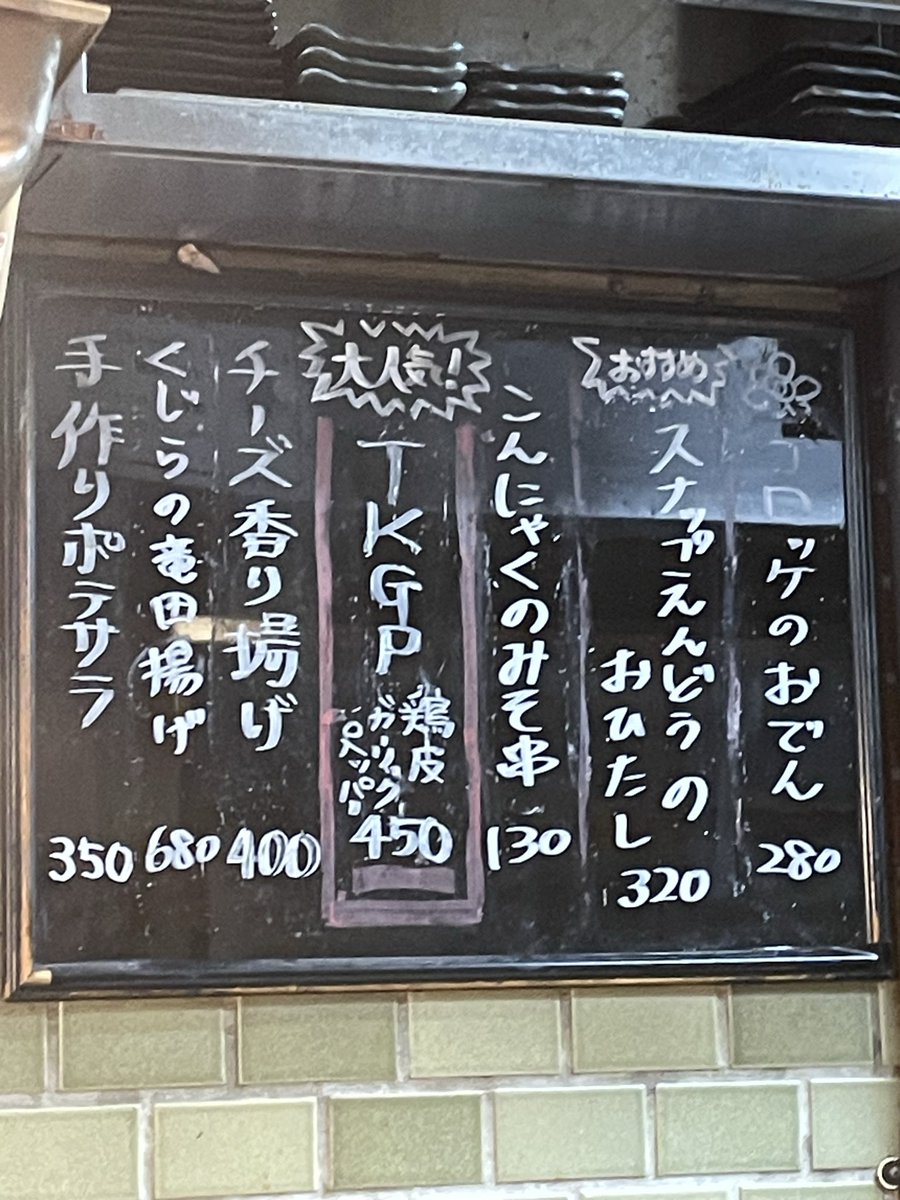 コロッケのおでん
280
おすすめ
スナップえんどうの
おひたし
320
こんにゃくのみそ串
130
大人気!
TKGP
鶏皮
ガーリック
ペッパー
450
チーズ香り場げ
400
くじらの竜田揚げ
680
手作りポテサラ
350